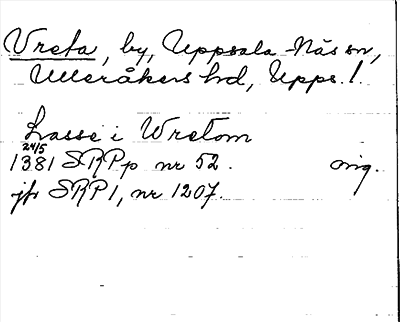 Vreta, by, Uppsala-Näs sn,
Ulleråkers hd, Upps. l.
Lasse i Wretom
24/5
1381 SRPp nr 52. orig.
jfr SRP 1, nr 1207.